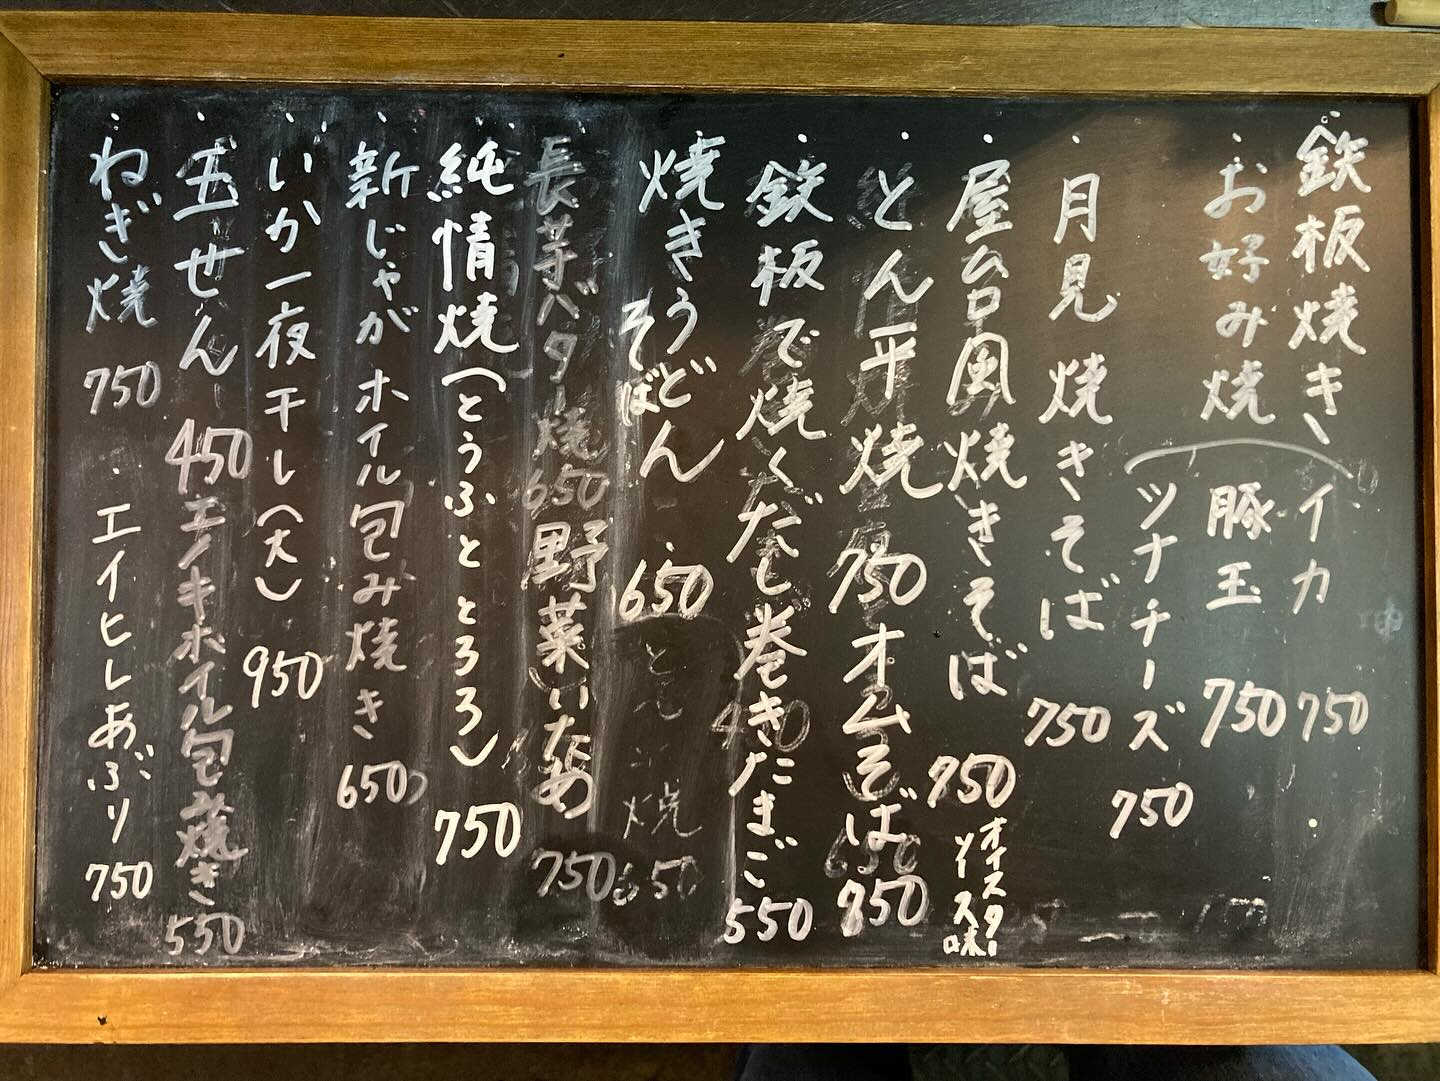 鉄板焼き
お好み焼
イカ 750
豚玉 750
ツナチーズ 750
月見焼きそば 750
屋台風焼きそば 750
オイスターソース味
とん平焼 750
オムそば 850
鉄板で焼くだし巻きたまご 550
焼きうどん
そば 650
長芋バター焼 650
野菜いため 750
純情焼(とうふととろろ) 750
新じゃがホイル包み焼き 650
いか一夜干し(大) 950
玉せん 450
エノキホイル包焼き 550
ねぎ焼 750
エイヒレあぶり 750